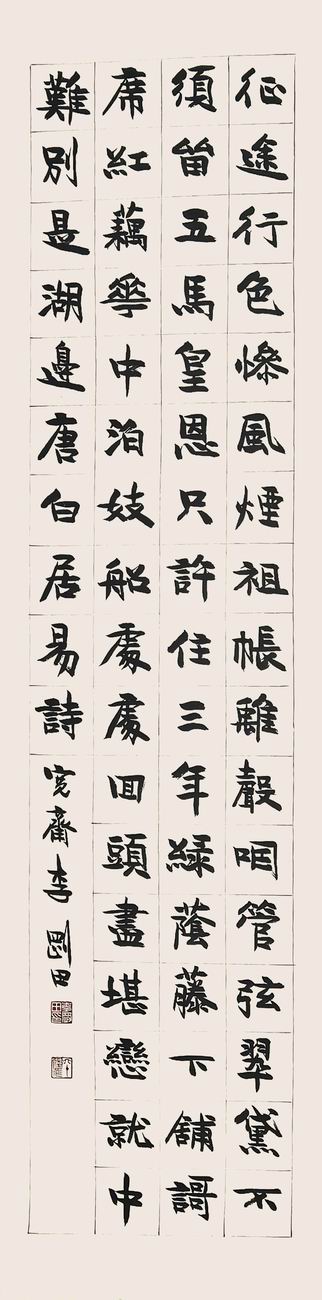 征途行色慘風煙祖帳離聲咽管弦翠黛不
須留五馬皇恩只許住三年緑蔭藤下舖謌
席紅藕華中泊妓船處處回頭盡堪戀就中
難別是湖邊唐白居易詩 寬齋李剛田